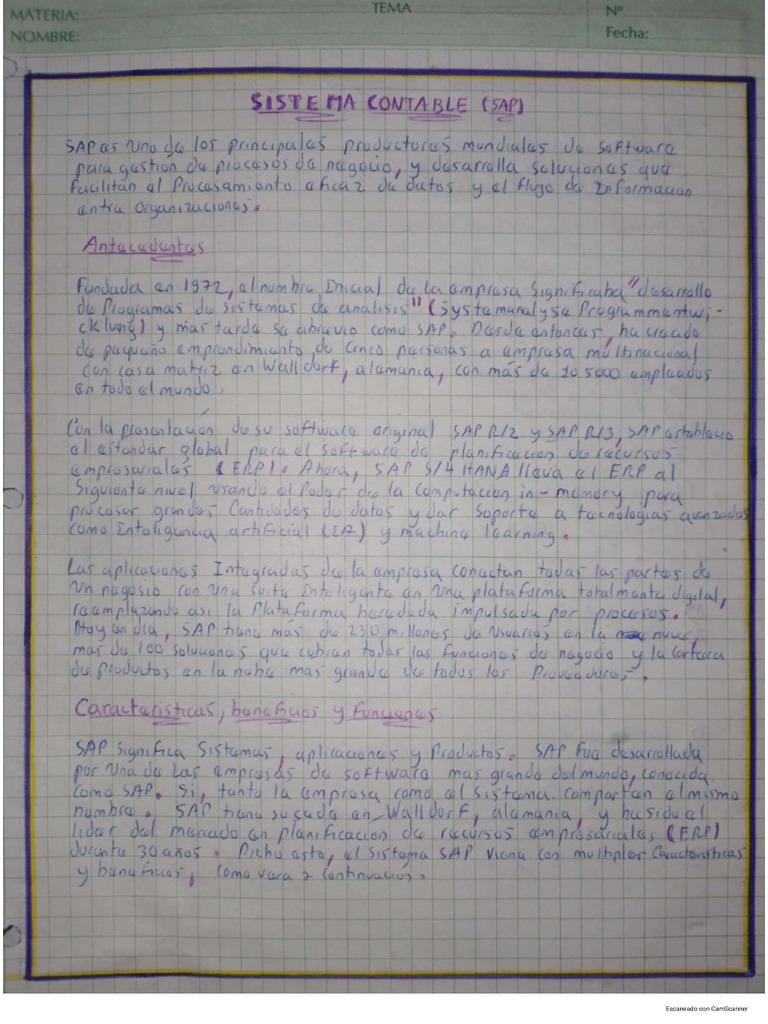 MATERIA:
TEMA
Nº
NOMBRE:
Fecha:
SISTEMA CONTABLE (SAP)
SAP es uno de los principales productores mundiales de software
para gestión de procesos de negocio, y desarrolla soluciones que
facilitan el Procesamiento eficaz de datos y el flujo de Informacion
entre organizaciones.
Antecedentes
Fundada en 1972, el nombre Inicial de la empresa significaba "desarrollo
de Programas de sistemas de analisis" (Systemanalyse Programmentwi-
cklung) y mas tarde se abrevio como SAP. Desde entonces, ha crecido
de pequeño emprendimiento de cinco personas a empresa multinacional
con casa matriz en Walldorf, alemania, con más de 10 5000 empleados
en todo el mundo.
Con la presentación de su software original SAP R/2 y SAP R/3, SAP establecio
el estandar global para el software de planificacion de recursos
empresariales (ERP). Ahora, SAP S/4 HANA lleva el ERP al
Siguiente nivel usando el Poder de la computacion in-memory para
procesar grandes Cantidades de datos y dar soporte a tecnologias avanzadas
como Inteligencia artificial (IA) y machine learning.
Las aplicaciones Integradas de la empresa conectan todas las partes de
un negosio con una suite Inteligente en una plataforma totalmente digital,
reemplazando asi la Plataforma heredada impulsada por procesos.
Hoy en dia, SAP tiene más de 230 millones de usuarios en la nuve,
mas de 100 soluciones que cubren todas las funciones de negocio y la cartera
de productos en la nube mas grande de todos los Proveedores.
Caracteristicas, beneficios y Funciones
SAP significa Sistemas, aplicaciones y Productos. SAP fue desarrollada
por una de las empresas de software mas grande del mundo, conocida
como SAP. Si, tanto la empresa como el sistema comparten el mismo
nombre. SAP tiene su sede en Walldorf, alemania, y ha sido el
lider del mercado en planificacion de recursos empresariales (ERP)
durante 30 años. Dicho esto, el sistema SAP viene con multiples Caracteristicas
y beneficios, como vera a continuacion.
Escaneado con CamScanner